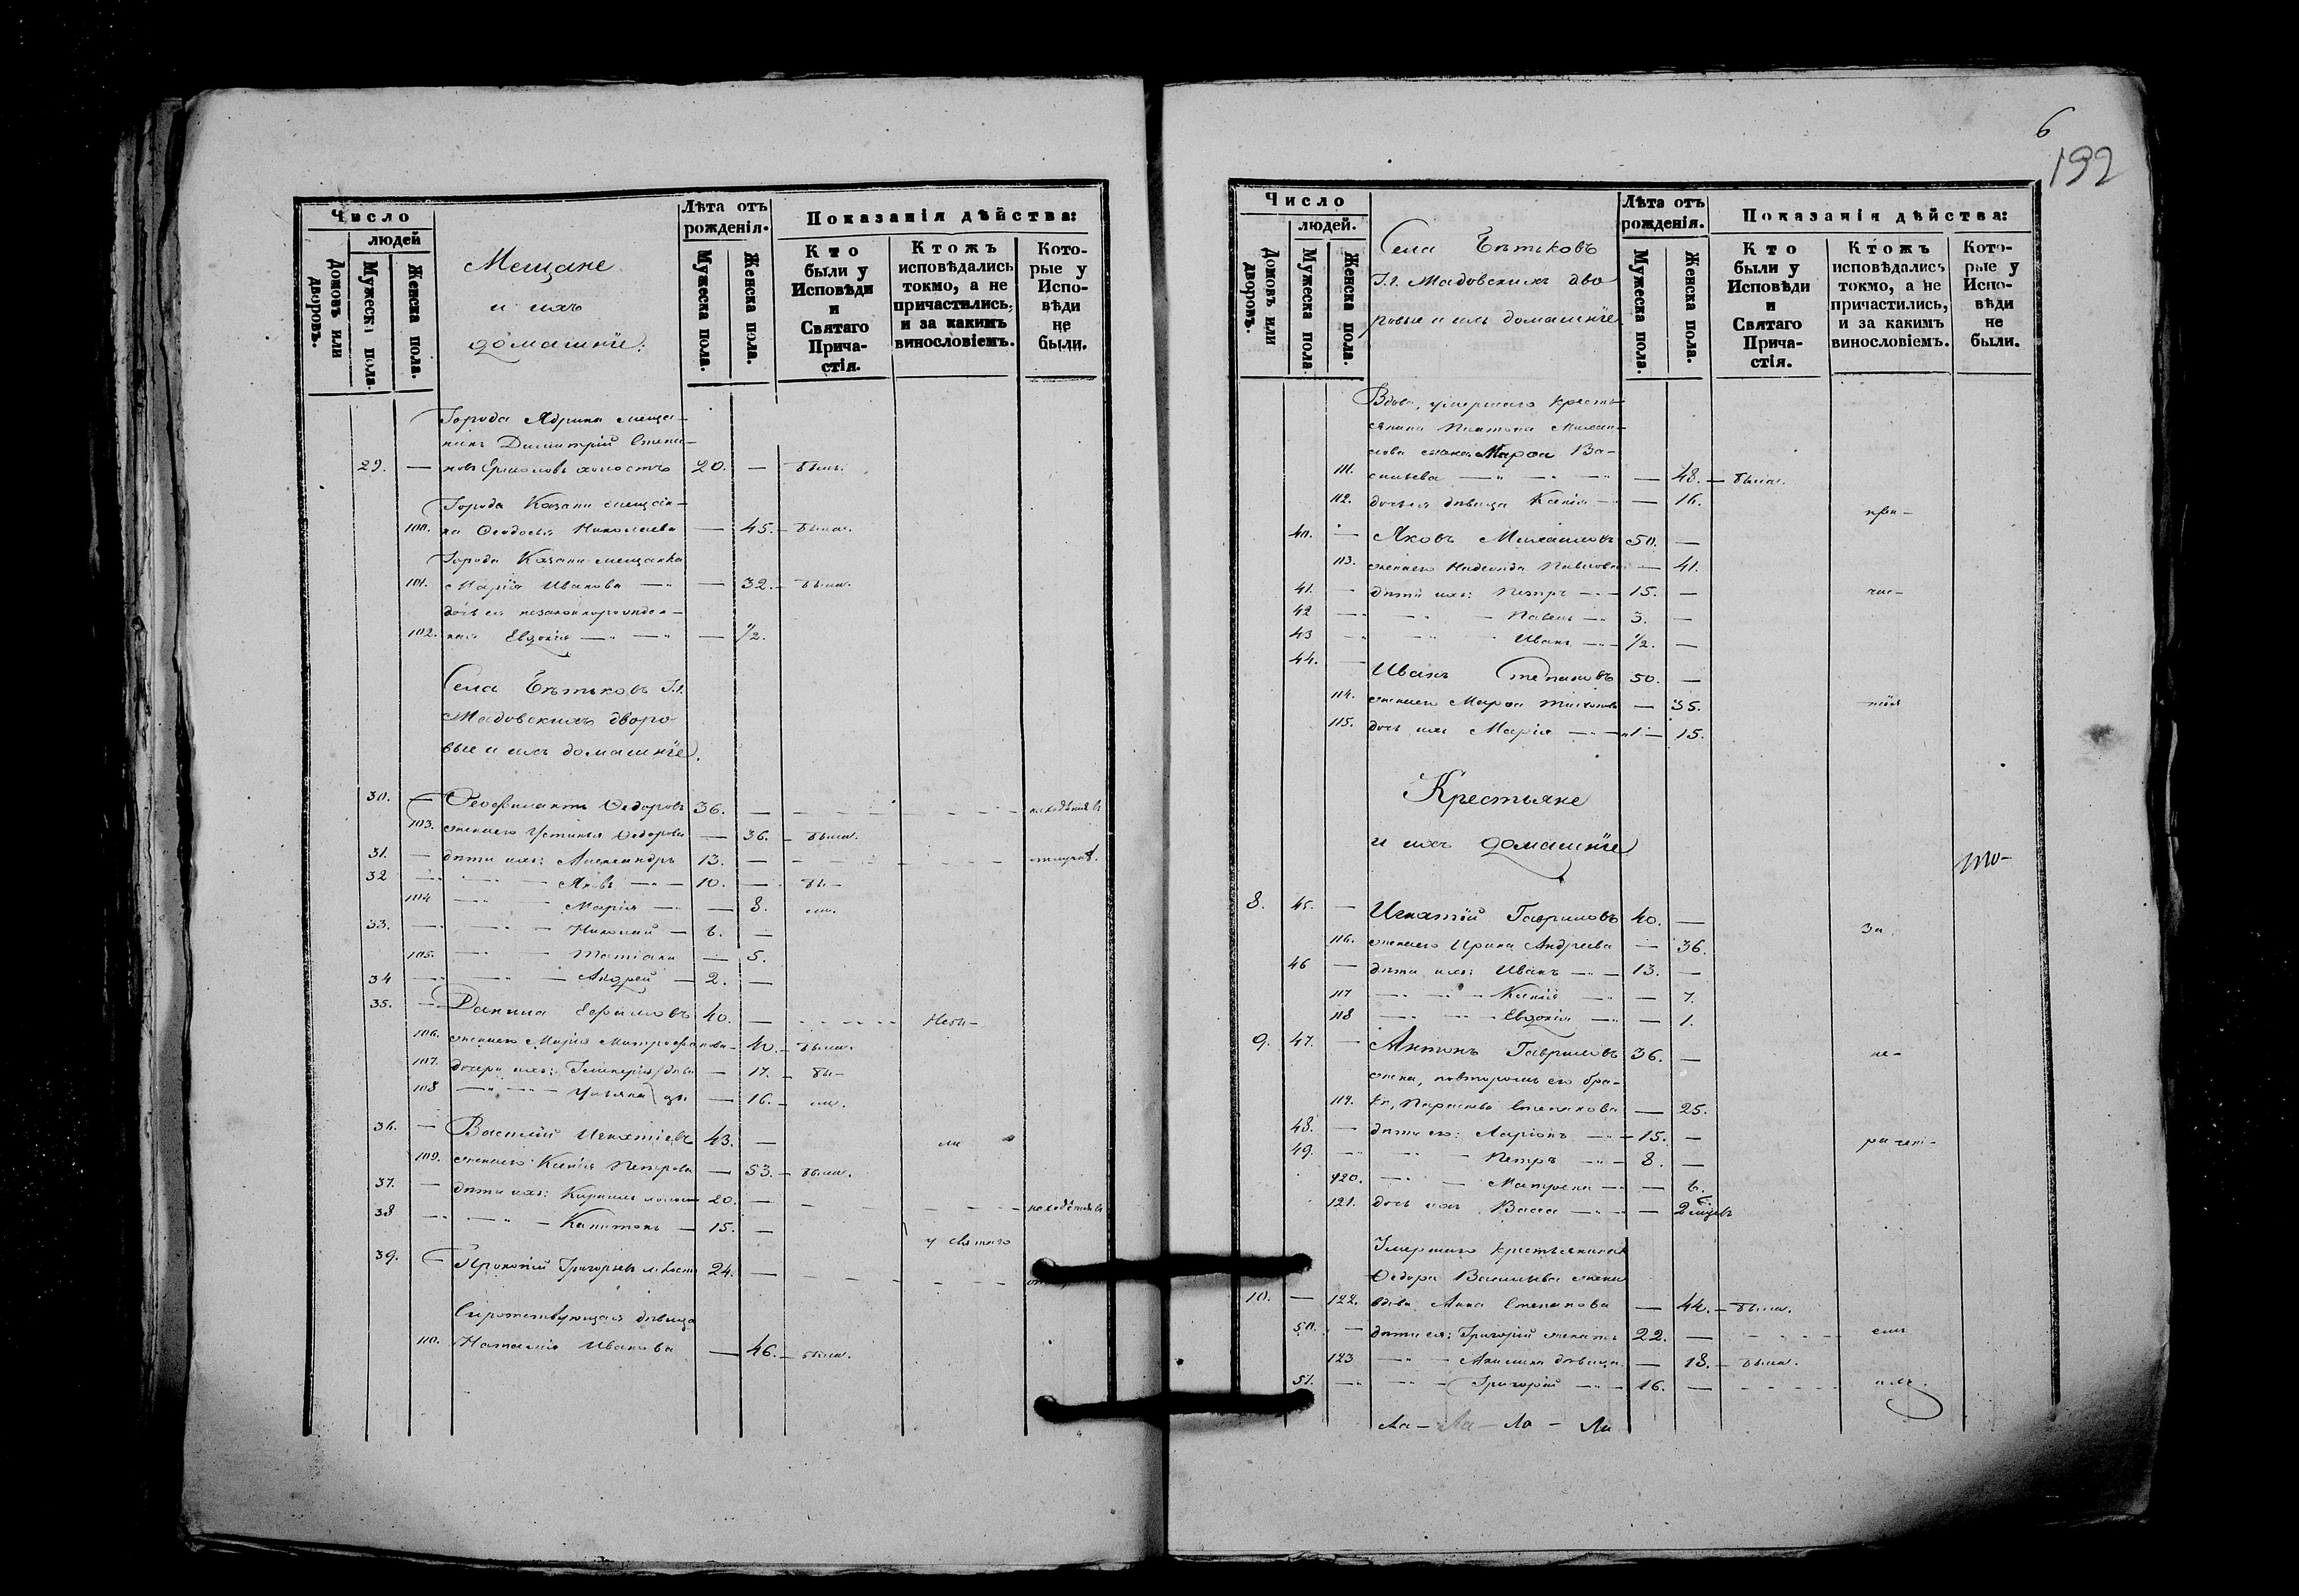 Число
людей
Домовъ или дворовъ.
Мужеска пола.
Женска пола.
Мещане
и ихъ
домашнїе.
Лѣта отъ рожденія.
Мужеска пола.
Женска пола.
Показанія дѣйства:
Кто были у Исповѣди и Святаго Прича-стія.
Ктожъ исповѣдались токмо, а не причастились, и за какимъ винословіемъ.
Кото-рые у Испо-вѣди не были.
Города Ядрина меща-
нинъ Димитрій Степа-
29. — новъ Ермоловъ холостъ 20. — былъ.
Города Казани мещан-
100. ка Ѳеодосья Николаева — 45. — была.
Города Казани мещанка
101. Марія Иванова — 32. — была.
дочь ея незаконнорожден-
102. ная Евдокія — 1/2.
Села Бѣтьковъ Г.г.
Мадовскихъ дворо-
вые и ихъ домашнїе.
30. — Ѳеофилактъ Ѳедоровъ 36. —
103. жена его Устинья Ѳедорова — 36. — была.
31. — дѣти ихъ: Александръ 13. —
32 — Яковъ — 10. — бы-
104 — Марія — 8. ли.
33. — Николай — 6. —
105. — Татіана — 5.
34 — Андрей — 2. —
35. — Данила Ефимовъ 40. — Небы-
106. жена его Марія Митрофанова — 40. — была.
107. дочери ихъ: Гликерія дѣви — 17. — бы-
108 — Ульяна цы — 16. — ли.
36. — Василій Игнатіевъ 43. — ли
109. жена его Ксенія Петрова — 53. — была.
37. — дѣти ихъ: Кириллъ холостъ 20. —
38 — Капитонъ — 15. —
у святаго
39. — Прокопій Григорьевъ холостъ 24. —
Сиротствующая дѣвица
110. Наталія Иванова — 46. — была.
6
192
Число
людей.
Домовъ или дворовъ.
Мужеска пола.
Женска пола.
Села Бѣтьковъ
Г.г. Мадовскихъ дво
ровые и ихъ домашнїе
Лѣта отъ рожденія.
Мужеска пола.
Женска пола.
Показанія дѣйства:
Кто были у Исповѣди и Святаго Прича-стія.
Ктожъ исповѣдались токмо, а не причастились, и за какимъ винословіемъ.
Кото-рые у Испо-вѣди не были.
Вдова, умершаго кресть-
янина Платона Михаи-
лова жена Марѳа Ва-
111. сильева — 48. — была.
112. дочь ея дѣвица Ксенія — 16.
при-
40. — Яковъ Михаиловъ 50. —
113. жена его Надежда Павлова — 41.
41. — дѣти ихъ: Петръ — 15. — час-
42 — Павелъ — 3. —
43 — Иванъ — 1/2. —
44. — Иванъ Степановъ 50. —
114. жена его Марѳа Тихонова — 35. тїя
115. дочь ихъ Марія — 15.
Крестьяне
и ихъ домашнїе
то-
8. 45. — Игнатій Гавриловъ 40. — за
116. жена его Ирина Андреева — 36.
46 — дѣти ихъ: Иванъ — 13. —
117 — Ксенія — 7.
118 — Евдокія — 1.
9. 47. — Антонъ Гавриловъ 36. — не-
жена, повторомъ его бра-
119. кѣ, Параскева Степанова — 25.
48. — дѣти его: Ларіонъ — 15. — рачені-
49. — Петръ — 8. —
120. — Матрена — 6.
121. дочь ихъ Васса — 2 мѣсяцъ
Умершаго крестьянина
Ѳедора Васильева жена
10. — 122. вдова Анна Степанова — 44. — была.
50. — дѣти ея: Григорій женатъ 22. — емъ
123 — Акилина дѣвица — 18. — была.
51. — Григорій — 16. —
Ла — Ла — Ла — Ла